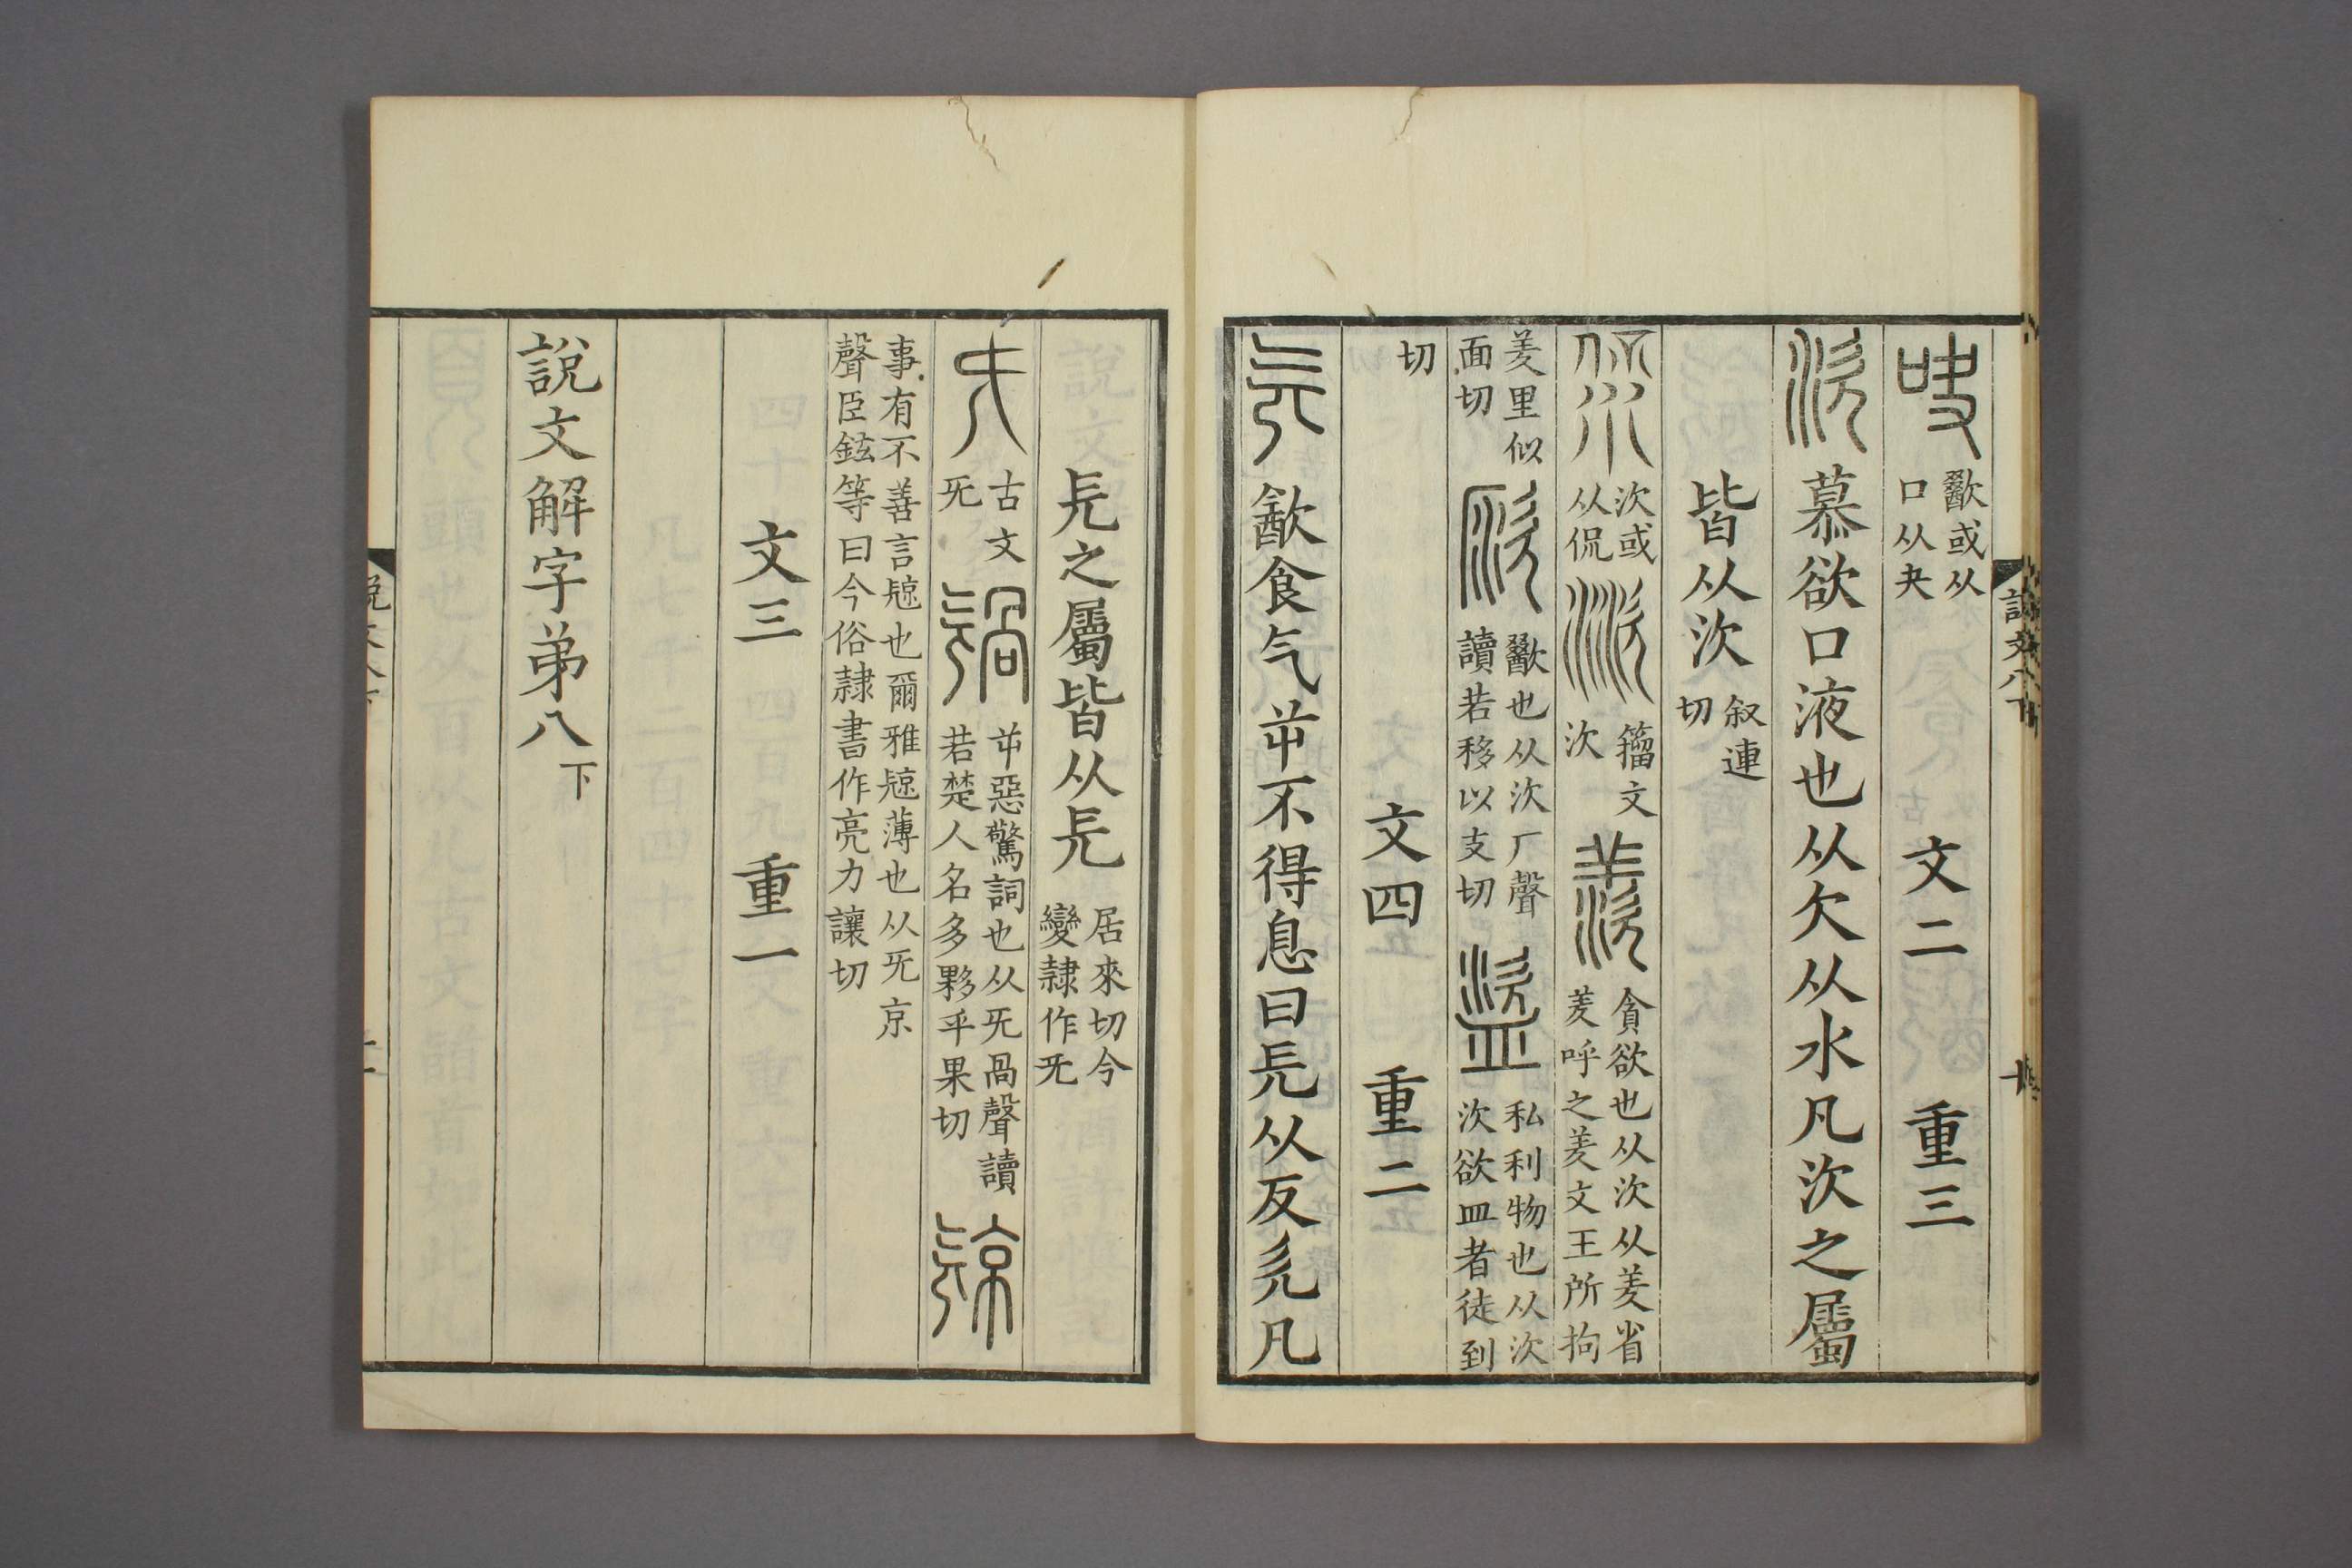 吷歠或从口从夬 文二 重三
㳄慕欲口液也从欠从水凡㳄之屬
皆从㳄叙連切
㳄或从侃 籀文㳄 羨貪欲也从㳄从羑省羑呼之羑文王所拘
羑里似面切 㳄厂歠也从㳄厂聲讀若移以支切 盜私利物也从㳄㳄欲皿者徒到
切 文四 重二
旡㱃食气屰不得息曰旡从反欠凡
旡之屬皆从旡居來切今變隷作旡
古文旡 屰惡驚詞也从旡咼聲讀若楚人名多夥乎果切 𣄴
事有不善言𣄴也爾雅𣄴薄也从旡京聲臣鉉等曰今俗隷書作亮力讓切
文三 重一
說文解字弟八下
說文八下